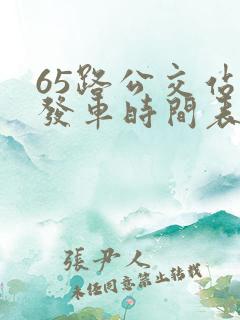 65路公交佔
發車時間表
張尹人
未經同意禁止轉載